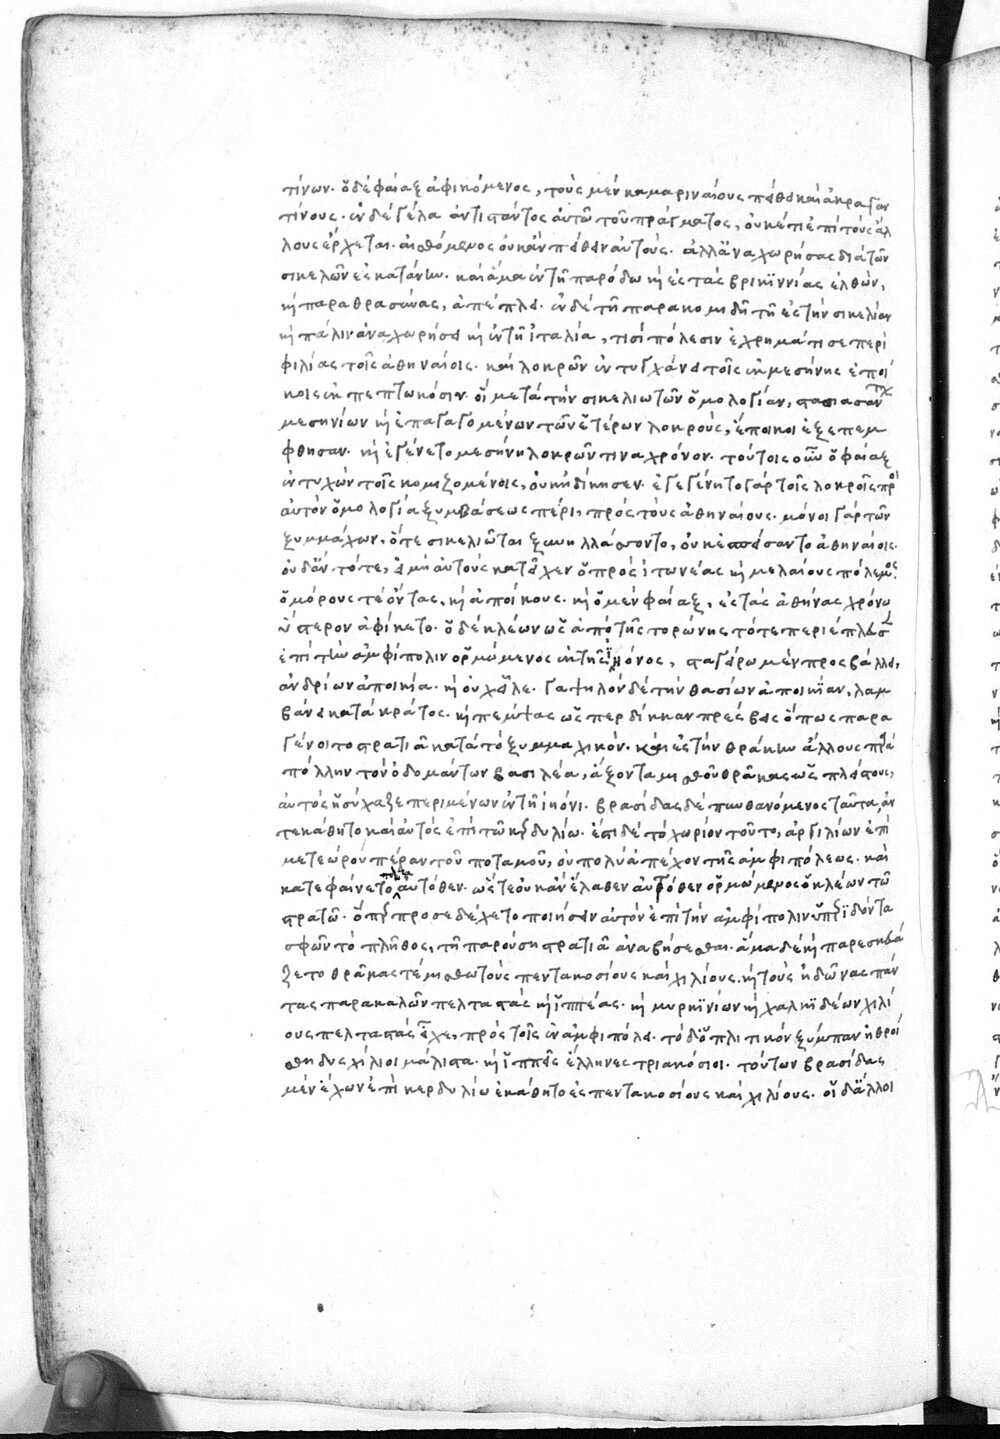 τίνων· ὁ δὲ φαίαξ ἀφικόμενος, τοὺς μὲν καμαριναίους πείθει καὶ ἀκραγαν
τίνους· ἐν δὲ γέλα ἀντιστάντος αὐτῶ τοῦ πράγματος, οὐκέτι ἐπὶ τοὺς ἄλ
λους ἔρχεται· αἰσθόμενος οὐκ ἂν πείθειν αὐτούς· ἀλλ' ἀναχωρήσας διὰ τῶν
σικελῶν ἐς κατάνην· καὶ ἅμα ἐν τῆ παρόδω κὴ ἐς τὰς βρικιννίας ἐλθών,
κὴ παραθρασύνας, ἀπέπλει· ἐν δὲ τῆ παρακομιδῆ τῆ ἐς τὴν σικελίαν
κὴ πάλιν ἀναχωρήσει κὴ ἐν τῆ ἰταλία, τισὶ πόλεσιν ἐχρημάτισε περὶ
φιλίας τοῖς ἀθηναίοις· καὶ λοκρῶν ἐντυγχάνει τοῖς ἐν μεσήνης ἐποί
κοις ἐκπεπτωκόσιν· οἳ μετὰ τὴν σικελιωτῶν ὁμολογίαν, στασιασάντων
μεσηνίων κὴ ἐπαγαγομένων τῶν ἑτέρων λοκρούς, ἔποικοι ἐξεπέμ
φθησαν· κὴ ἐγένετο μεσήνη λοκρῶν τινα χρόνον· τούτοις οὖν ὁ φαίαξ
ἐντυχὼν τοῖς κομιζομένοις, οὐκ ἠδίκησεν· ἐγεγένητο γὰρ τοῖς λοκροῖς πρὸς
αὐτὸν ὁμολογία ξυμβάσεως πέρι, πρὸς τοὺς ἀθηναίους· μόνοι γὰρ τῶν
ξυμμάχων, ὅτε σικελιῶται ξυνηλλάσσοντο, οὐκ ἐσπείσαντο ἀθηναίοις·
οὐδ' ἂν τότε, εἰ μὴ αὐτοὺς κατεῖχεν ὁ πρὸς ἰτωνέας κὴ μελαίους πόλεμος·
ὁμόρους τε ὄντας, κὴ ἀποίκους· κὴ ὁ μὲν φαίαξ, ἐς τὰς ἀθήνας χρόνω
ὕστερον ἀφίκετο· ὁ δὲ κλέων ὡς ἀπὸ τῆς τορώνης τότε περιέπλευσεν
ἐπὶ τὴν ἀμφίπολιν ὁρμώμενος ἐκ τῆς ἠιόνος, σταγείρω μὲν προσβάλλει,
ἀνδρίων ἀποικία· κὴ οὐχ εἷλε· γαψηλὸν δὲ τὴν θασίων ἀποικίαν, λαμ
βάνει κατὰ κράτος· κὴ πέμψας ὡς περδίκκαν πρέσβεις ὅπως παρα
γένοιτο στρατιᾶ κατὰ τὸ ξυμμαχικόν· καὶ ἐς τὴν θράκην ἄλλους παρὰ
πόλλην τὸν ὀδομάντων βασιλέα, ἄξοντα μισθοῦ θρᾶκας ὡς πλείστους,
αὐτὸς ἡσύχαζε περιμένων ἐν τῆ ἠιόνι· βρασίδας δὲ πυνθανόμενος ταῦτα, ἀν
τεκάθητο καὶ αὐτὸς ἐπὶ τῶ κερδυλίω· ἔστι δὲ τὸ χωρίον τοῦτο, ἀργιλίων ἐπὶ
μετεώρου πέραν τοῦ ποταμοῦ, οὐ πολὺ ἀπέχον τῆς ἀμφιπόλεως· καὶ
κατεφαίνετο πάντα αὐτόθεν· ὥστε οὐκ ἂν ἔλαθεν αὐτόθεν ὁρμώμενος ὁ κλέων τῶ
στρατῶ· ὅπερ προσεδέχετο ποιήσειν αὐτὸν ἐπὶ τὴν ἀμφίπολιν ὑπεριδόντα
σφῶν τὸ πλῆθος, τῆ παρούση στρατιᾶ ἀναβήσεσθαι· ἅμα δὲ κὴ παρεσκευά
ζετο θρᾶκάς τε μισθωτοὺς πεντακοσίους καὶ χιλίους· κὴ τοὺς ἠδῶνας πάν
τας παρακαλῶν πελταστὰς κὴ ἱππέας· κὴ μυρκινίων κὴ χαλκιδέων χιλί
ους πελταστὰς εἶχε, πρὸς τοῖς ἐν ἀμφιπόλει· τὸ δ' ὁπλιτικὸν ξύμπαν ἠθροί
σθη δισχίλιοι μάλιστα· κὴ ἱππεῖς ἕλληνες τριακόσιοι· τούτων βρασίδας
μὲν ἔχων ἐπὶ κερδυλίω ἐκάθητο ἐς πεντακοσίους καὶ χιλίους· οἱ δ' ἄλλοι